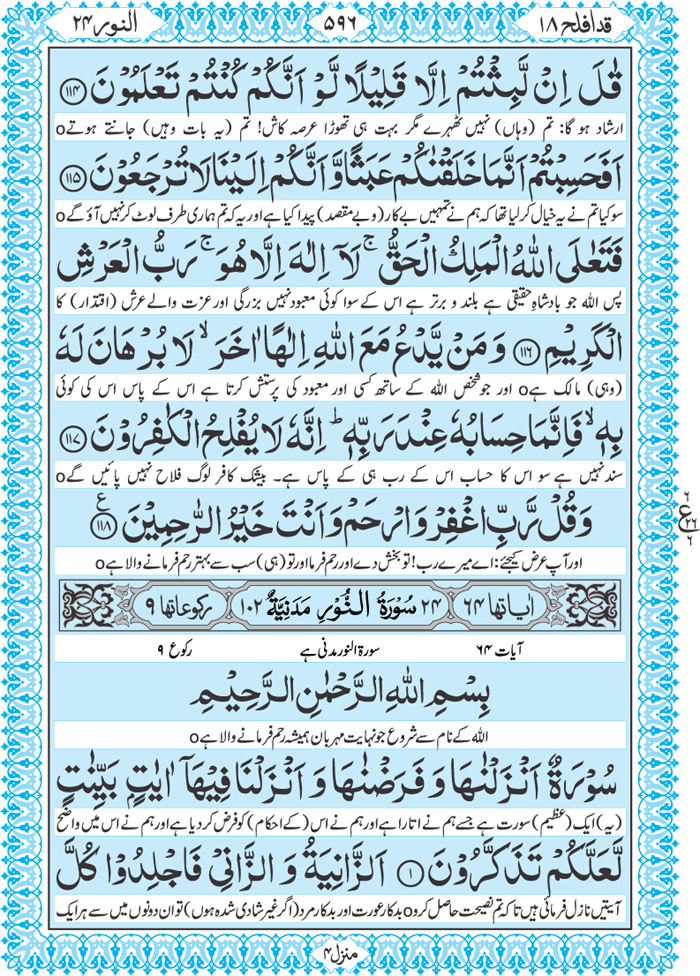 قد افلح ۱۸
۵۹۶
النور ۲۴
قٰلَ اِنْ لَّبِثْتُمْ اِلَّا قَلِیْلًا لَّوْ اَنَّكُمْ كُنْتُمْ تَعْلَمُوْنَ ۱۱۴
ارشاد ہو گا: تم (وہاں) نہیں ٹھہرے مگر بہت ہی تھوڑا عرصہ کاش! تم (یہ بات وہیں) جانتے ہوتےo
اَفَحَسِبْتُمْ اَنَّمَا خَلَقْنٰكُمْ عَبَثًا وَّ اَنَّكُمْ اِلَیْنَا لَا تُرْجَعُوْنَ ۱۱۵
سو کیا تم نے یہ خیال کر لیا تھا کہ ہم نے تمہیں بے کار (و بے مقصد) پیدا کیا ہے اور یہ کہ تم ہماری طرف لوٹ کر نہیں آؤ گےo
فَتَعٰلَی اللّٰهُ الْمَلِكُ الْحَقُّ ۚ لَاۤ اِلٰهَ اِلَّا هُوَ ۚ رَبُّ الْعَرْشِ
پس اللہ جو بادشاہِ حقیقی ہے بلند و برتر ہے اس کے سوا کوئی معبود نہیں بزرگی اور عزت والے عرش (اقتدار) کا
الْكَرِیْمِ ۱۱۶ وَ مَنْ یَّدْعُ مَعَ اللّٰهِ اِلٰهًا اٰخَرَ ۙ لَا بُرْهَانَ لَهٗ
(وہی) مالک ہےo اور جو شخص اللہ کے ساتھ کسی اور معبود کی پرستش کرتا ہے اس کے پاس اس کی کوئی
بِهٖ ۙ فَاِنَّمَا حِسَابُهٗ عِنْدَ رَبِّهٖ ؕ اِنَّهٗ لَا یُفْلِحُ الْكٰفِرُوْنَ ۱۱۷
سند نہیں ہے سو اس کا حساب اس کے رب ہی کے پاس ہے۔ بیشک کافر لوگ فلاح نہیں پائیں گےo
وَ قُلْ رَّبِّ اغْفِرْ وَ ارْحَمْ وَ اَنْتَ خَیْرُ الرّٰحِمِیْنَ ۱۱۸ ع
۶
ع ۲۶
۶
اور آپ عرض کیجئے: اے میرے رب! تو بخش دے اور رحم فرما اور تو (ہی) سب سے بہتر رحم فرمانے والا ہےo
اٰیاتھا ۶۴ ۲۴ سُوْرَةُ النُّوْرِ مَدَنِیَّةٌ ۱۰۲ رکوعاتھا ۹
آیات ۶۴ سورۃ النور مدنی ہے رکوع ۹
بِسْمِ اللّٰهِ الرَّحْمٰنِ الرَّحِیْمِ
اللہ کے نام سے شروع جو نہایت مہربان ہمیشہ رحم فرمانے والا ہےo
سُوْرَةٌ اَنْزَلْنٰهَا وَ فَرَضْنٰهَا وَ اَنْزَلْنَا فِیْهَاۤ اٰیٰتٍۭ بَیِّنٰتٍ
(یہ) ایک (عظیم) سورت ہے جسے ہم نے اتارا ہے اور ہم نے اس (کے احکام) کو فرض کر دیا ہے اور ہم نے اس میں واضح
لَّعَلَّكُمْ تَذَكَّرُوْنَ ۱ اَلزَّانِیَةُ وَ الزَّانِیْ فَاجْلِدُوْا كُلَّ
آیتیں نازل فرمائی ہیں تاکہ تم نصیحت حاصل کروo بدکار عورت اور بدکار مرد (اگر غیر شادی شدہ ہوں) تو ان دونوں میں سے ہر ایک
منزل ۴